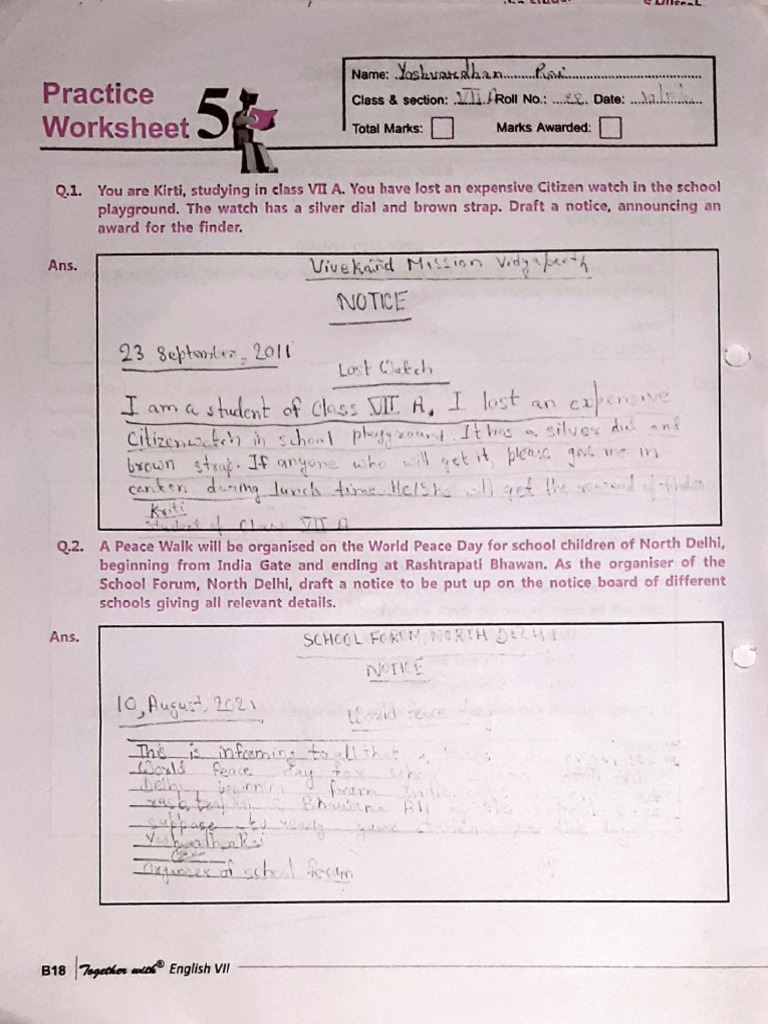 Practice
Worksheet 5
Name: Yashvardhan Rai
Class & section: VII A Roll No.: 22 Date:
Total Marks: Marks Awarded:
Q.1. You are Kirti, studying in class VII A. You have lost an expensive Citizen watch in the school
playground. The watch has a silver dial and brown strap. Draft a notice, announcing an
award for the finder.
Ans.
Vivekand Mission Vidyapeeth
NOTICE
23 September, 2011
Lost Watch
I am a student of Class VII A. I lost an expensive
Citizen watch in school playground. It has a silver dial and
brown strap. If anyone who will get it, please give me in
canten during lunch time. He/She will get the reward of
Kriti
Student of Class VII A
Q.2. A Peace Walk will be organised on the World Peace Day for school children of North Delhi,
beginning from India Gate and ending at Rashtrapati Bhawan. As the organiser of the
School Forum, North Delhi, draft a notice to be put up on the notice board of different
schools giving all relevant details.
Ans.
SCHOOL FORUM, NORTH DELHI
NOTICE
10, August, 2021
World Peace
is informing to all that a
World Peace day for
Delhi, beginning from
Bhawana All
to ready
of school forum
B18 Together with® English VII